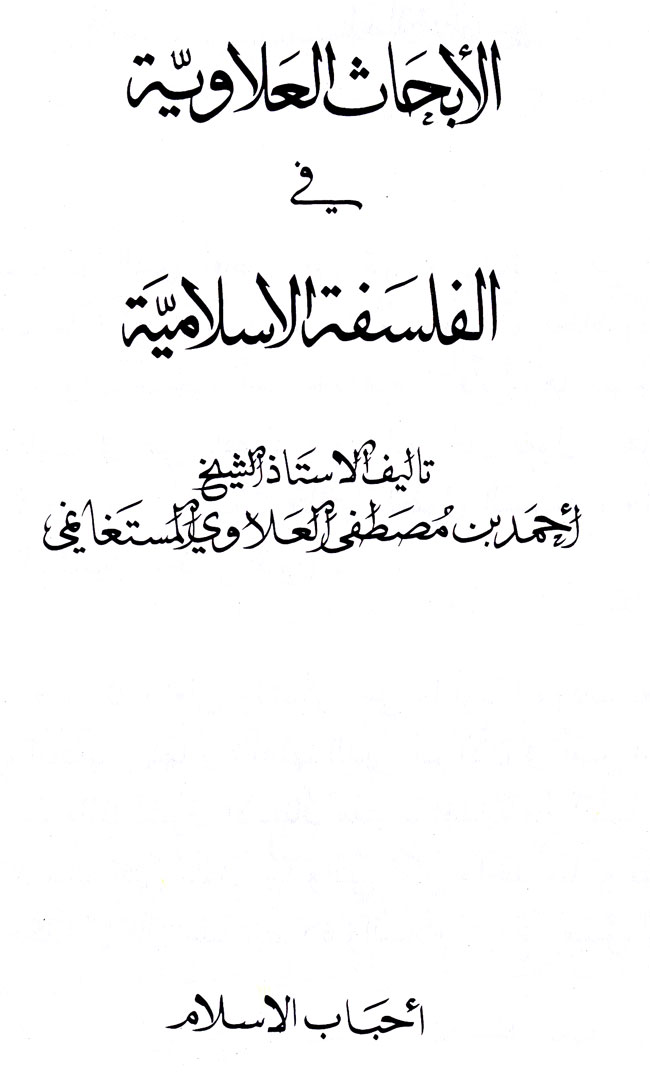 الأبحَاث العَلاويّة
في
الفلسَفة الاسلاميّة
تاليف الاستَاذ الشيخ
أحمَد بن مُصَطفى العَلاوي المستَغانمي
أحبَاب الاسلام